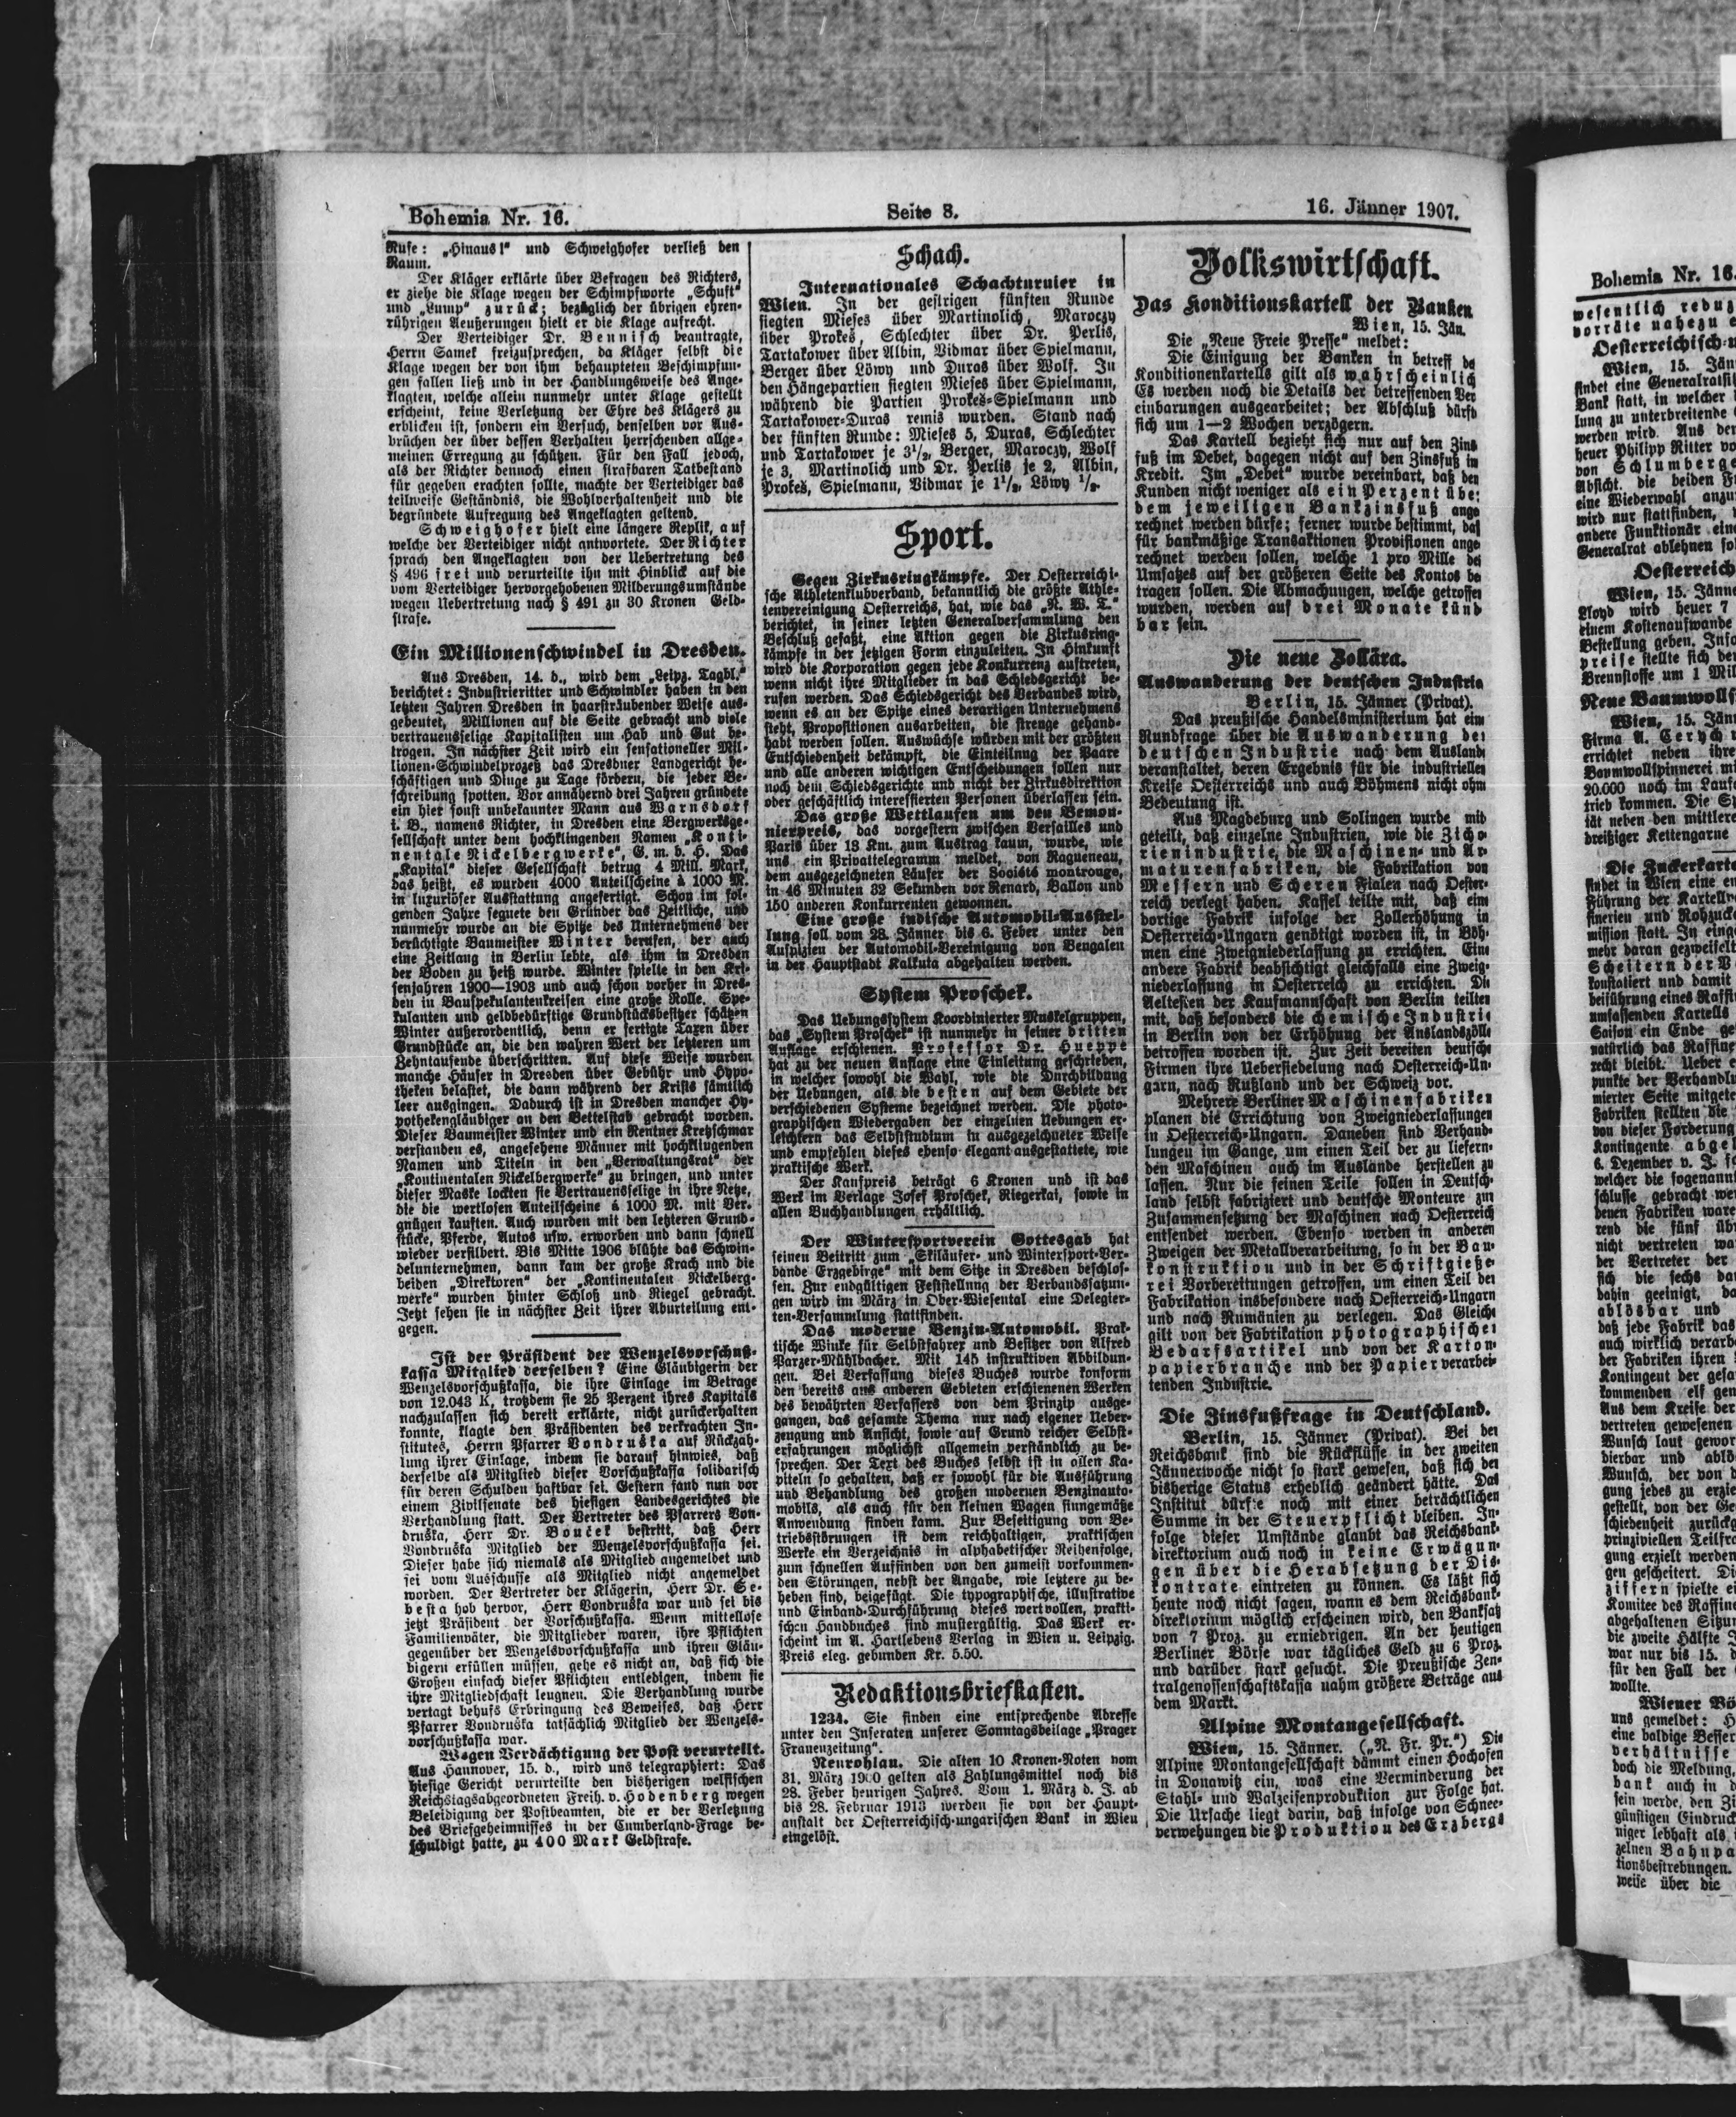 Bohemia Nr. 16.
Seite 8.
16. Jänner 1907.
Rufe: „Hinaus!“ und Schweighofer verließ den
Raum.
Der Kläger erklärte über Befragen des Richters,
er ziehe die Klage wegen der Schimpfworte „Schuft“
und „Lump“ zurück; bezüglich der übrigen ehren-
rührigen Aeußerungen hielt er die Klage aufrecht.
Der Verteidiger Dr. Bennisch beantragte,
Herrn Samek freizusprechen, da Kläger selbst die
Klage wegen der von ihm behaupteten Beschimpfun-
gen fallen ließ und in der Handlungsweise des Ange-
klagten, welche allein nunmehr unter Klage gestellt
erscheint, keine Verletzung der Ehre des Klägers zu
erblicken ist, sondern ein Versuch, denselben vor Aus-
brüchen der über dessen Verhalten herrschenden allge-
meinen Erregung zu schützen. Für den Fall jedoch,
als der Richter dennoch einen strafbaren Tatbestand
für gegeben erachten sollte, machte der Verteidiger das
teilweise Geständnis, die Wohlverhaltenheit und die
begründete Aufregung des Angeklagten geltend.
Schweighofer hielt eine längere Replik, auf
welche der Verteidiger nicht antwortete. Der Richter
sprach den Angeklagten von der Uebertretung des
§ 496 frei und verurteilte ihn mit Hinblick auf die
vom Verteidiger hervorgehobenen Milderungsumstände
wegen Uebertretung nach § 491 zu 30 Kronen Geld-
strafe.
Ein Millionenschwindel in Dresden.
Aus Dresden, 14. d., wird dem „Leipz. Tagbl.“
berichtet: Industrieritter und Schwindler haben in den
letzten Jahren Dresden in haarsträubender Weise aus-
gebeutet, Millionen auf die Seite gebracht und viele
vertrauensselige Kapitalisten um Hab und Gut be-
trogen. In nächster Zeit wird ein sensationeller Mil-
lionen-Schwindelprozeß das Dresdner Landgericht be-
schäftigen und Dinge zu Tage fördern, die jeder Be-
schreibung spotten. Vor annähernd drei Jahren gründete
ein hier sonst unbekannter Mann aus Warnsdorf
i. B., namens Richter, in Dresden eine Bergwerksge-
sellschaft unter dem hochklingenden Namen „Konti-
nentale Nickelbergwerke“, G. m. b. H. Das
„Kapital“ dieser Gesellschaft betrug 4 Mill. Mark,
das heißt, es wurden 4000 Anteilscheine à 1000 M.
in luxuriöser Ausstattung angefertigt. Schon im fol-
genden Jahre segnete den Gründer das Zeitliche, und
nunmehr wurde an die Spitze des Unternehmens der
berüchtigte Baumeister Winter berufen, der auch
eine Zeitlang in Berlin lebte, als ihm in Dresden
der Boden zu heiß wurde. Winter spielte in den Kri-
senjahren 1900—1903 und auch schon vorher in Dres-
den in Bauspekulantenkreisen eine große Rolle. Spe-
kulanten und geldbedürftige Grundstücksbesitzer schätzen
Winter außerordentlich, denn er fertigte Taxen über
Grundstücke an, die den wahren Wert der letzteren um
Zehntausende überschritten. Auf diese Weise wurden
manche Häuser in Dresden über Gebühr und Hypo-
theken belastet, die dann während der Krisis sämtlich
leer ausgingen. Dadurch ist in Dresden mancher Hy-
pothekengläubiger an den Bettelstab gebracht worden.
Dieser Baumeister Winter und ein Rentner Kretzschmar
verstanden es, angesehene Männer mit hochklingenden
Namen und Titeln in den „Verwaltungsrat“ der
„Kontinentalen Nickelbergwerke“ zu bringen, und unter
dieser Maske lockten sie Vertrauensselige in ihre Netze,
die die wertlosen Anteilscheine à 1000 M. mit Ver-
gnügen kauften. Auch wurden mit den letzteren Grund-
stücke, Pferde, Autos usw. erworben und dann schnell
wieder versilbert. Bis Mitte 1906 blühte das Schwin-
delunternehmen, dann kam der große Krach und die
beiden „Direktoren“ der „Kontinentalen Nickelberg-
werke“ wurden hinter Schloß und Riegel gebracht.
Jetzt sehen sie in nächster Zeit ihrer Aburteilung ent-
gegen.
Ist der Präsident der Wenzelsvorschuß-
kassa Mitglied derselben? Eine Gläubigerin der
Wenzelsvorschußkassa, die ihre Einlage im Betrage
von 12.043 K, trotzdem sie 25 Perzent ihres Kapitals
nachzulassen sich bereit erklärte, nicht zurückerhalten
konnte, klagte den Präsidenten des verkrachten In-
stitutes, Herrn Pfarrer Vondruška auf Rückzah-
lung ihrer Einlage, indem sie darauf hinwies, daß
derselbe als Mitglied dieser Vorschußkassa solidarisch
für deren Schulden haftbar sei. Gestern fand nun vor
einem Zivilsenate des hiesigen Landesgerichtes die
Verhandlung statt. Der Vertreter des Pfarrers Von-
druška, Herr Dr. Bouček bestritt, daß Herr
Vondruška Mitglied der Wenzelsvorschußkassa sei.
Dieser habe sich niemals als Mitglied angemeldet und
sei vom Ausschusse als Mitglied nicht angemeldet
worden. Der Vertreter der Klägerin, Herr Dr. Se-
besta hob hervor, Herr Vondruška war und sei bis
jetzt Präsident der Vorschußkassa. Wenn mittellose
Familienväter, die Mitglieder waren, ihre Pflichten
gegenüber der Wenzelsvorschußkassa und ihren Gläu-
bigern erfüllen müssen, gehe es nicht an, daß sich die
Großen einfach dieser Pflichten entledigen, indem sie
ihre Mitgliedschaft leugnen. Die Verhandlung wurde
vertagt behufs Erbringung des Beweises, daß Herr
Pfarrer Vondruška tatsächlich Mitglied der Wenzels-
vorschußkassa war.
Wegen Verdächtigung der Post verurteilt.
Aus Hannover, 15. d., wird uns telegraphiert: Das
hiesige Gericht verurteilte den bisherigen welfischen
Reichstagsabgeordneten Freih. v. Hodenberg wegen
Beleidigung der Postbeamten, die er der Verletzung
des Briefgeheimnisses in der Cumberland-Frage be-
schuldigt hatte, zu 400 Mark Geldstrafe.
Schach.
Internationales Schachturnier in
Wien. In der gestrigen fünften Runde
siegten Mieses über Martinolich, Maroczy
über Prokeš, Schlechter über Dr. Perlis,
Tartakower über Albin, Vidmar über Spielmann,
Berger über Löwy und Duras über Wolf. In
den Hängepartien siegten Mieses über Spielmann,
während die Partien Prokeš-Spielmann und
Tartakower-Duras remis wurden. Stand nach
der fünften Runde: Mieses 5, Duras, Schlechter
und Tartakower je 3½, Berger, Maroczy, Wolf
je 3, Martinolich und Dr. Perlis je 2, Albin,
Prokeš, Spielmann, Vidmar je 1½, Löwy ½.
Sport.
Gegen Zirkusringkämpfe. Der Oesterreichi-
sche Athletenklubverband, bekanntlich die größte Athle-
tenvereinigung Oesterreichs, hat, wie das „N. W. T.“
berichtet, in seiner letzten Generalversammlung den
Beschluß gefaßt, eine Aktion gegen die Zirkusring-
kämpfe in der jetzigen Form einzuleiten. In Hinkunft
wird die Korporation gegen jede Konkurrenz auftreten,
wenn nicht ihre Mitglieder in das Schiedsgericht be-
rufen werden. Das Schiedsgericht des Verbandes wird,
wenn es an der Spitze eines derartigen Unternehmens
steht, Propositionen ausarbeiten, die strenge gehand-
habt werden sollen. Auswüchse würden mit der größten
Entschiedenheit bekämpft, die Einteilung der Paare
und alle anderen wichtigen Entscheidungen sollen nur
noch dem Schiedsgerichte und nicht der Zirkusdirektion
oder geschäftlich interessierten Personen überlassen sein.
Das große Wettlaufen um den Bemon-
nierpreis, das vorgestern zwischen Versailles und
Paris über 18 Km. zum Austrag kam, wurde, wie
uns ein Privattelegramm meldet, von Ragueneau,
dem ausgezeichneten Läufer der Société montrouge,
in 46 Minuten 32 Sekunden vor Renard, Ballon und
150 anderen Konkurrenten gewonnen.
Eine große indische Automobil-Ausstel-
lung soll vom 28. Jänner bis 6. Feber unter den
Auspizien der Automobil-Vereinigung von Bengalen
in der Hauptstadt Kalkuta abgehalten werden.
System Proschek.
Das Uebungssystem koordinierter Muskelgruppen,
das „System Proschek“ ist nunmehr in seiner dritten
Auflage erschienen. Professor Dr. Hueppe
hat zu der neuen Auflage eine Einleitung geschrieben,
in welcher sowohl die Wahl, wie die Durchbildung
der Uebungen, als die besten auf dem Gebiete der
verschiedenen Systeme bezeichnet werden. Die photo-
graphischen Wiedergaben der einzelnen Uebungen er-
leichtern das Selbststudium in ausgezeichneter Weise
und empfehlen dieses ebenso elegant ausgestattete, wie
praktische Werk.
Der Kaufpreis beträgt 6 Kronen und ist das
Werk im Verlage Josef Proschek, Riegerkai, sowie in
allen Buchhandlungen erhältlich.
Der Wintersportverein Gottesgab hat
seinen Beitritt zum „Skiläufer- und Wintersport-Ver-
bande Erzgebirge“ mit dem Sitze in Dresden beschlos-
sen. Zur endgültigen Feststellung der Verbandssatzun-
gen wird im März in Ober-Wiesental eine Delegier-
ten-Versammlung stattfinden.
Das moderne Benzin-Automobil. Prak-
tische Winke für Selbstfahrer und Besitzer von Alfred
Parzer-Mühlbacher. Mit 145 instruktiven Abbildun-
gen. Bei Verfassung dieses Buches wurde konform
den bereits aus anderen Gebieten erschienenen Werken
des bewährten Verfassers von dem Prinzip ausge-
gangen, das gesamte Thema nur nach eigener Ueber-
zeugung und Ansicht, sowie auf Grund reicher Selbst-
erfahrungen möglichst allgemein verständlich zu be-
sprechen. Der Text des Buches selbst ist in allen Ka-
piteln so gehalten, daß er sowohl für die Ausführung
und Behandlung des großen modernen Benzinauto-
mobils, als auch für den kleinen Wagen sinngemäße
Anwendung finden kann. Zur Beseitigung von Be-
triebsstörungen ist dem reichhaltigen, praktischen
Werke ein Verzeichnis in alphabetischer Reihenfolge,
zum schnellen Auffinden von den zumeist vorkommen-
den Störungen, nebst der Angabe, wie letztere zu be-
heben sind, beigefügt. Die typographische, illustrative
und Einband-Durchführung dieses wertvollen, prakti-
schen Handbuches sind mustergültig. Das Werk er-
scheint im A. Hartlebens Verlag in Wien u. Leipzig.
Preis eleg. gebunden Kr. 5.50.
Redaktionsbriefkasten.
1234. Sie finden eine entsprechende Adresse
unter den Inseraten unserer Sonntagsbeilage „Prager
Frauenzeitung“.
Neurohlau. Die alten 10 Kronen-Noten vom
31. März 1900 gelten als Zahlungsmittel noch bis
28. Feber heurigen Jahres. Vom 1. März d. J. ab
bis 28. Februar 1913 werden sie von der Haupt-
anstalt der Oesterreichisch-ungarischen Bank in Wien
eingelöst.
Volkswirtschaft.
Das Konditionskartell der Banken
Wien, 15. Jän.
Die „Neue Freie Presse“ meldet:
Die Einigung der Banken in betreff de
Konditionenkartells gilt als wahrscheinlich
Es werden noch die Details der betreffenden Ver
einbarungen ausgearbeitet; der Abschluß dürft
sich um 1—2 Wochen verzögern.
Das Kartell bezieht sich nur auf den Zins
fuß im Debet, dagegen nicht auf den Zinsfuß im
Kredit. Im „Debet“ wurde vereinbart, daß den
Kunden nicht weniger als ein Perzent über
dem jeweiligen Bankzinsfuß ange
rechnet werden dürfe; ferner wurde bestimmt, daß
für bankmäßige Transaktionen Provisionen ange
rechnet werden sollen, welche 1 pro Mille des
Umsatzes auf der größeren Seite des Kontos be
tragen sollen. Die Abmachungen, welche getroffen
wurden, werden auf drei Monate künd
bar sein.
Die neue Zollära.
Auswanderung der deutschen Industrie
Berlin, 15. Jänner (Privat).
Das preußische Handelsministerium hat eine
Rundfrage über die Auswanderung der
deutschen Industrie nach dem Auslande
veranstaltet, deren Ergebnis für die industriellen
Kreise Oesterreichs und auch Böhmens nicht ohne
Bedeutung ist.
Aus Magdeburg und Solingen wurde mit
geteilt, daß einzelne Industrien, wie die Zicho
rienindustrie, die Maschinen- und Ar-
maturenfabriken, die Fabrikation von
Messern und Scheren Fialen nach Oester-
reich verlegt haben. Kassel teilte mit, daß eine
dortige Fabrik infolge der Zollerhöhung in
Oesterreich-Ungarn genötigt worden ist, in Böh-
men eine Zweigniederlassung zu errichten. Eine
andere Fabrik beabsichtigt gleichfalls eine Zweig-
niederlassung in Oesterreich zu errichten. Die
Aeltesten der Kaufmannschaft von Berlin teilten
mit, daß besonders die chemische Industrie
in Berlin von der Erhöhung der Auslandszölle
betroffen worden ist. Zur Zeit bereiten deutsche
Firmen ihre Uebersiedelung nach Oesterreich-Un-
garn, nach Rußland und der Schweiz vor.
Mehrere Berliner Maschinenfabriken
planen die Errichtung von Zweigniederlassungen
in Oesterreich-Ungarn. Daneben sind Verhand-
lungen im Gange, um einen Teil der zu liefern-
den Maschinen auch im Auslande herstellen zu
lassen. Nur die feinen Teile sollen in Deutsch-
land selbst fabriziert und deutsche Monteure zur
Zusammensetzung der Maschinen nach Oesterreich
entsendet werden. Ebenso werden in anderen
Zweigen der Metallverarbeitung, so in der Bau-
konstruktion und in der Schriftgieße-
rei Vorbereitungen getroffen, um einen Teil der
Fabrikation insbesondere nach Oesterreich-Ungarn
und nach Rumänien zu verlegen. Das Gleiche
gilt von der Fabrikation photographischer
Bedarfsartikel und von der Karton-
papierbranche und der Papierverarbei-
tenden Industrie.
Die Zinsfußfrage in Deutschland.
Berlin, 15. Jänner (Privat). Bei der
Reichsbank sind die Rückflüsse in der zweiten
Jännerwoche nicht so stark gewesen, daß sich der
bisherige Status erheblich geändert hätte. Das
Institut dürfte noch mit einer beträchtlichen
Summe in der Steuerpflicht bleiben. In-
folge dieser Umstände glaubt das Reichsbank-
direktorium auch noch in keine Erwägun-
gen über die Herabsetzung der Dis-
kontrate eintreten zu können. Es läßt sich
heute noch nicht sagen, wann es dem Reichsbank-
direktorium möglich erscheinen wird, den Banksatz
von 7 Proz. zu erniedrigen. An der heutigen
Berliner Börse war tägliches Geld zu 6 Proz.
und darüber stark gesucht. Die Preußische Zen-
tralgenossenschaftskassa nahm größere Beträge aus
dem Markt.
Alpine Montangesellschaft.
Wien, 15. Jänner. („N. Fr. Pr.“) Die
Alpine Montangesellschaft dämmt einen Hochofen
in Donawitz ein, was eine Verminderung der
Stahl- und Walzeisenproduktion zur Folge hat.
Die Ursache liegt darin, daß infolge von Schnee-
verwehungen die Produktion des Erzbergs
Bohemia Nr. 16.
wesentlich reduz
vorräte nahezu e
Oesterreichisch-u
Wien, 15. Jän
findet eine Generalratssi
Bank statt, in welcher
lung zu unterbreitende
werden wird. Aus dem
heuer Philipp Ritter vo
von Schlumberge
Absicht, die beiden F
eine Wiederwahl anzu
wird nur stattfinden,
andere Funktionär ein
Generalrat ablehnen so
Oesterreich
Wien, 15. Jänne
Lloyd wird heuer 7
einem Kostenaufwande
Bestellung geben. Info
preise stellte sich der
Brennstoffe um 1 Mil
Neue Baumwolls
Wien, 15. Jän
Firma A. Cerych
errichtet neben ihre
Baumwollspinnerei mi
20.000 noch im Laufe
trieb kommen. Die Sp
tät neben den mittlere
dreißiger Kettengarne
Die Zuckerkarte
findet in Wien eine en
Führung der Kartellv
finerien und Rohzuck
mission statt. In einge
mehr daran gezweifelt
Scheitern der V
konstatiert und damit
beiführung eines Raffin
umfassenden Kartells
Saison ein Ende ge
natürlich das Raffine
recht bleibt. Ueber
punkte der Verhandlu
mierter Seite mitgete
Fabriken stellten die
von dieser Forderung
Kontingente abge
6. Dezember v. J. sc
welcher die sogenann
schlusse gebracht we
denen Fabriken ware
rend die fünf übr
nicht vertreten wa
der Vertreter der
sich die sechs da
dahin geeinigt, da
ablösbar und
daß jede Fabrik das
auch wirklich verarbe
der Fabriken ihren
Kontingent der gesa
kommenden elf gen
Aus dem Kreise der
vertreten gewesenen
Wunsch laut gewor
dierbar und ablö
Wunsch, der von d
gung jedes zu erzie
gestellt, von der Ge
schiedenheit zurückg
prinzipiellen Teilfra
gung erzielt werden
gen gescheitert. Di
ziffern spielte ei
Komitee des Raffine
abgehaltenen Sitzun
die zweite Hälfte J
war nur bis 15. d
für den Fall der
wollte.
Wiener Bö
uns gemeldet: H
eine baldige Besser
verhältnisse
doch die Meldung,
bank auch in
sein werde, den Zi
günstigen Eindruck
niger lebhaft als
zelnen Bahnpa
tionsbestrebungen.
weise über die